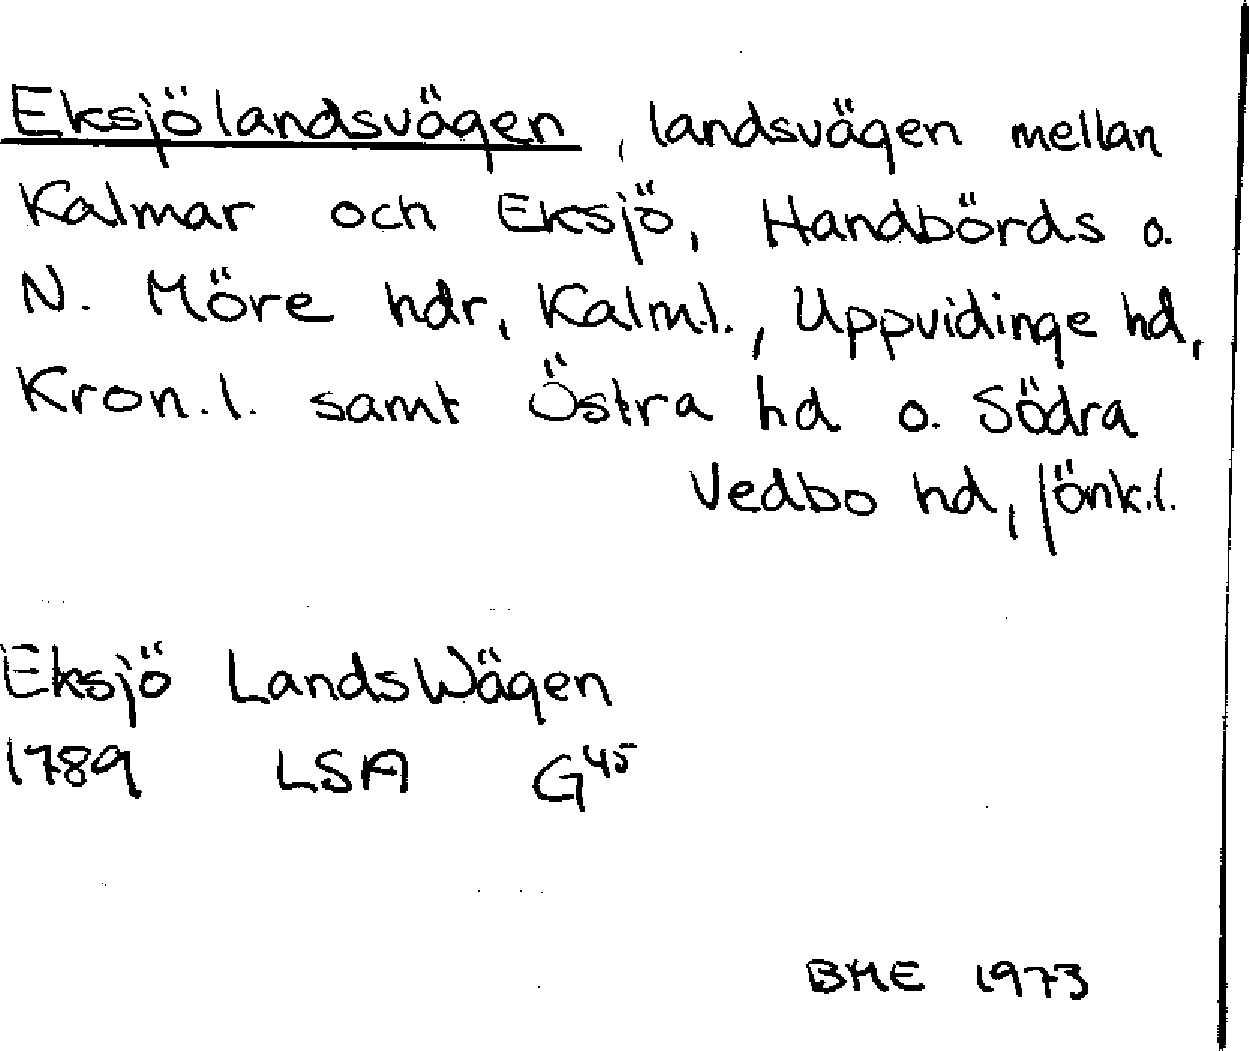 Eksjölandsvägen, landsvägen mellan
Kalmar och Eksjö, Handbörds o.
N. Möre hdr, Kalm.l., Uppvidinge hd,
Kron.l. samt Östra hd o. Södra
Vedbo hd, Jönk.l.
Eksjö LandsWägen
1789 LSA G45
BME 1973